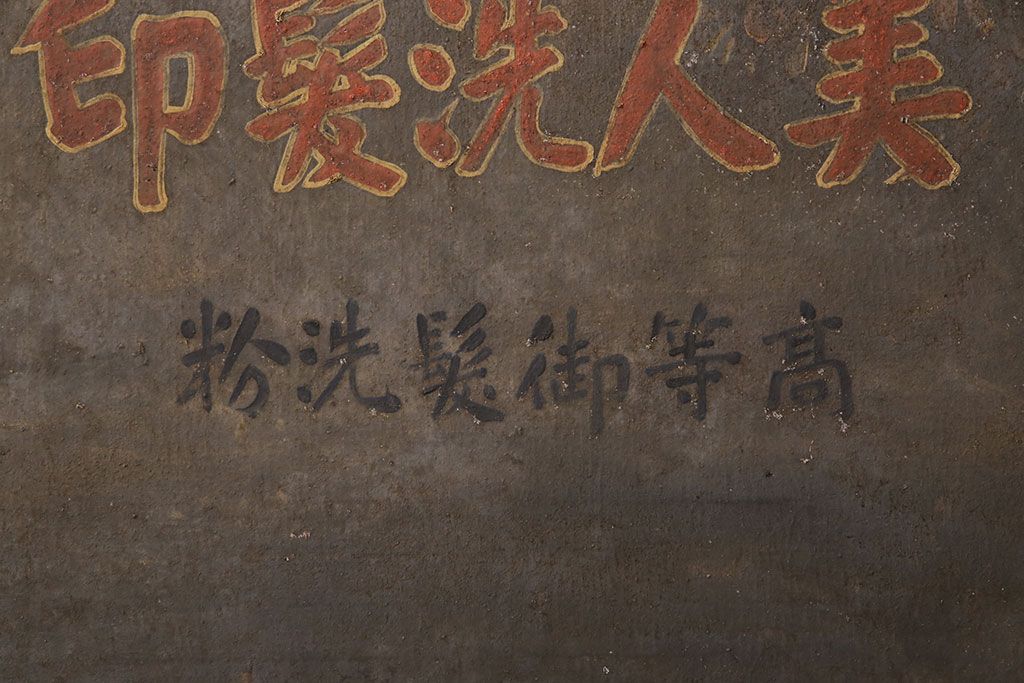 美人洗髮印
高等御髮洗粉